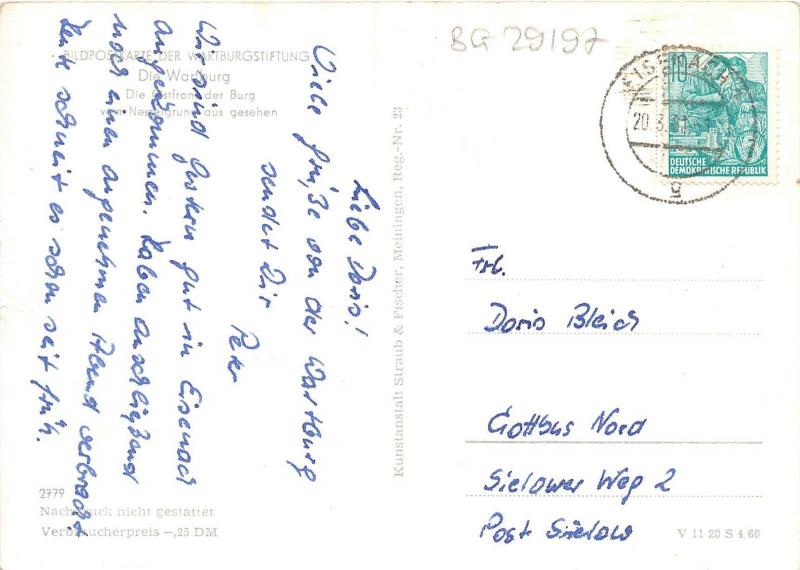 BG 29197
BILDPOSTKARTE DER WARTBURGSTIFTUNG
Die Wartburg
Die Ostfront der Burg
vom Nesselgrund aus gesehen
Liebe Doris!
Viele Grüße von der Wartburg
sendet Dir
Peter
Wir sind gestern gut in Eisenach
angekommen. Haben anschließend
noch einen angenehmen Abend verbracht.
Heute schneit es schon seit früh.
2979
Nachdruck nicht gestattet
Verbraucherpreis -,25 DM
Kunstanstalt Straub & Fischer, Meiningen, Reg.-Nr. 23
EISENACH
20.3.61
g
10
DEUTSCHE
DEMOKRATISCHE REPUBLIK
Frl.
Doris Bleich
Cottbus Nord
Sielower Weg 2
Post Sielow
V 11 28 S 4,60